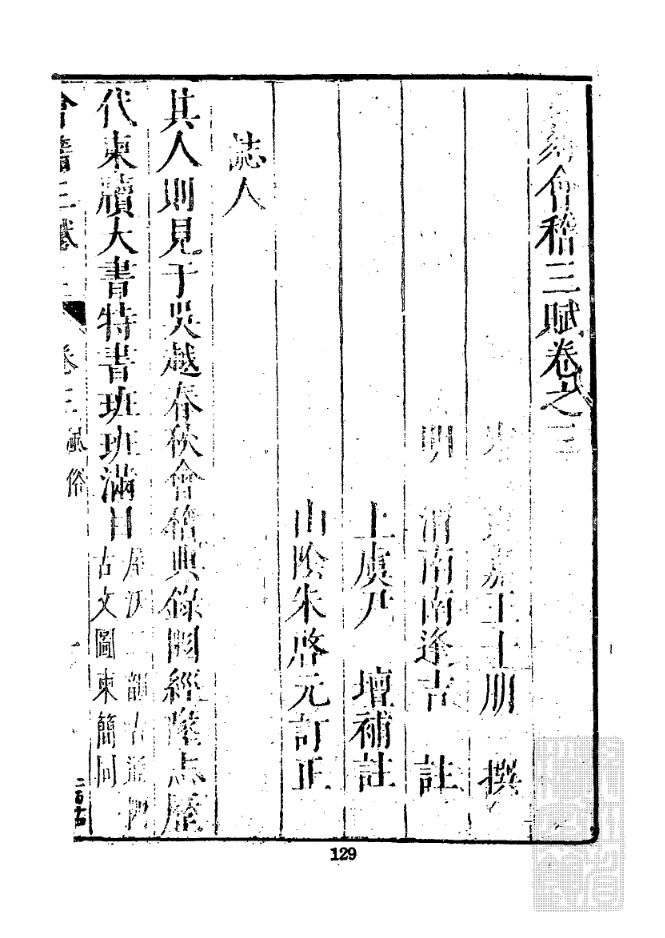 刻會稽三賦卷之三
宋 永嘉王十朋 撰
明 渭南南逢吉 註
上虞尹 壇補註
山陰朱啓元訂正
誌人
其人則見于吳越春秋會稽典錄圖經陸志歷
代東牘大書特書班班滿目
屋沃二韻古通
古文圖東簡同
會稽三賦
卷三
風俗
129